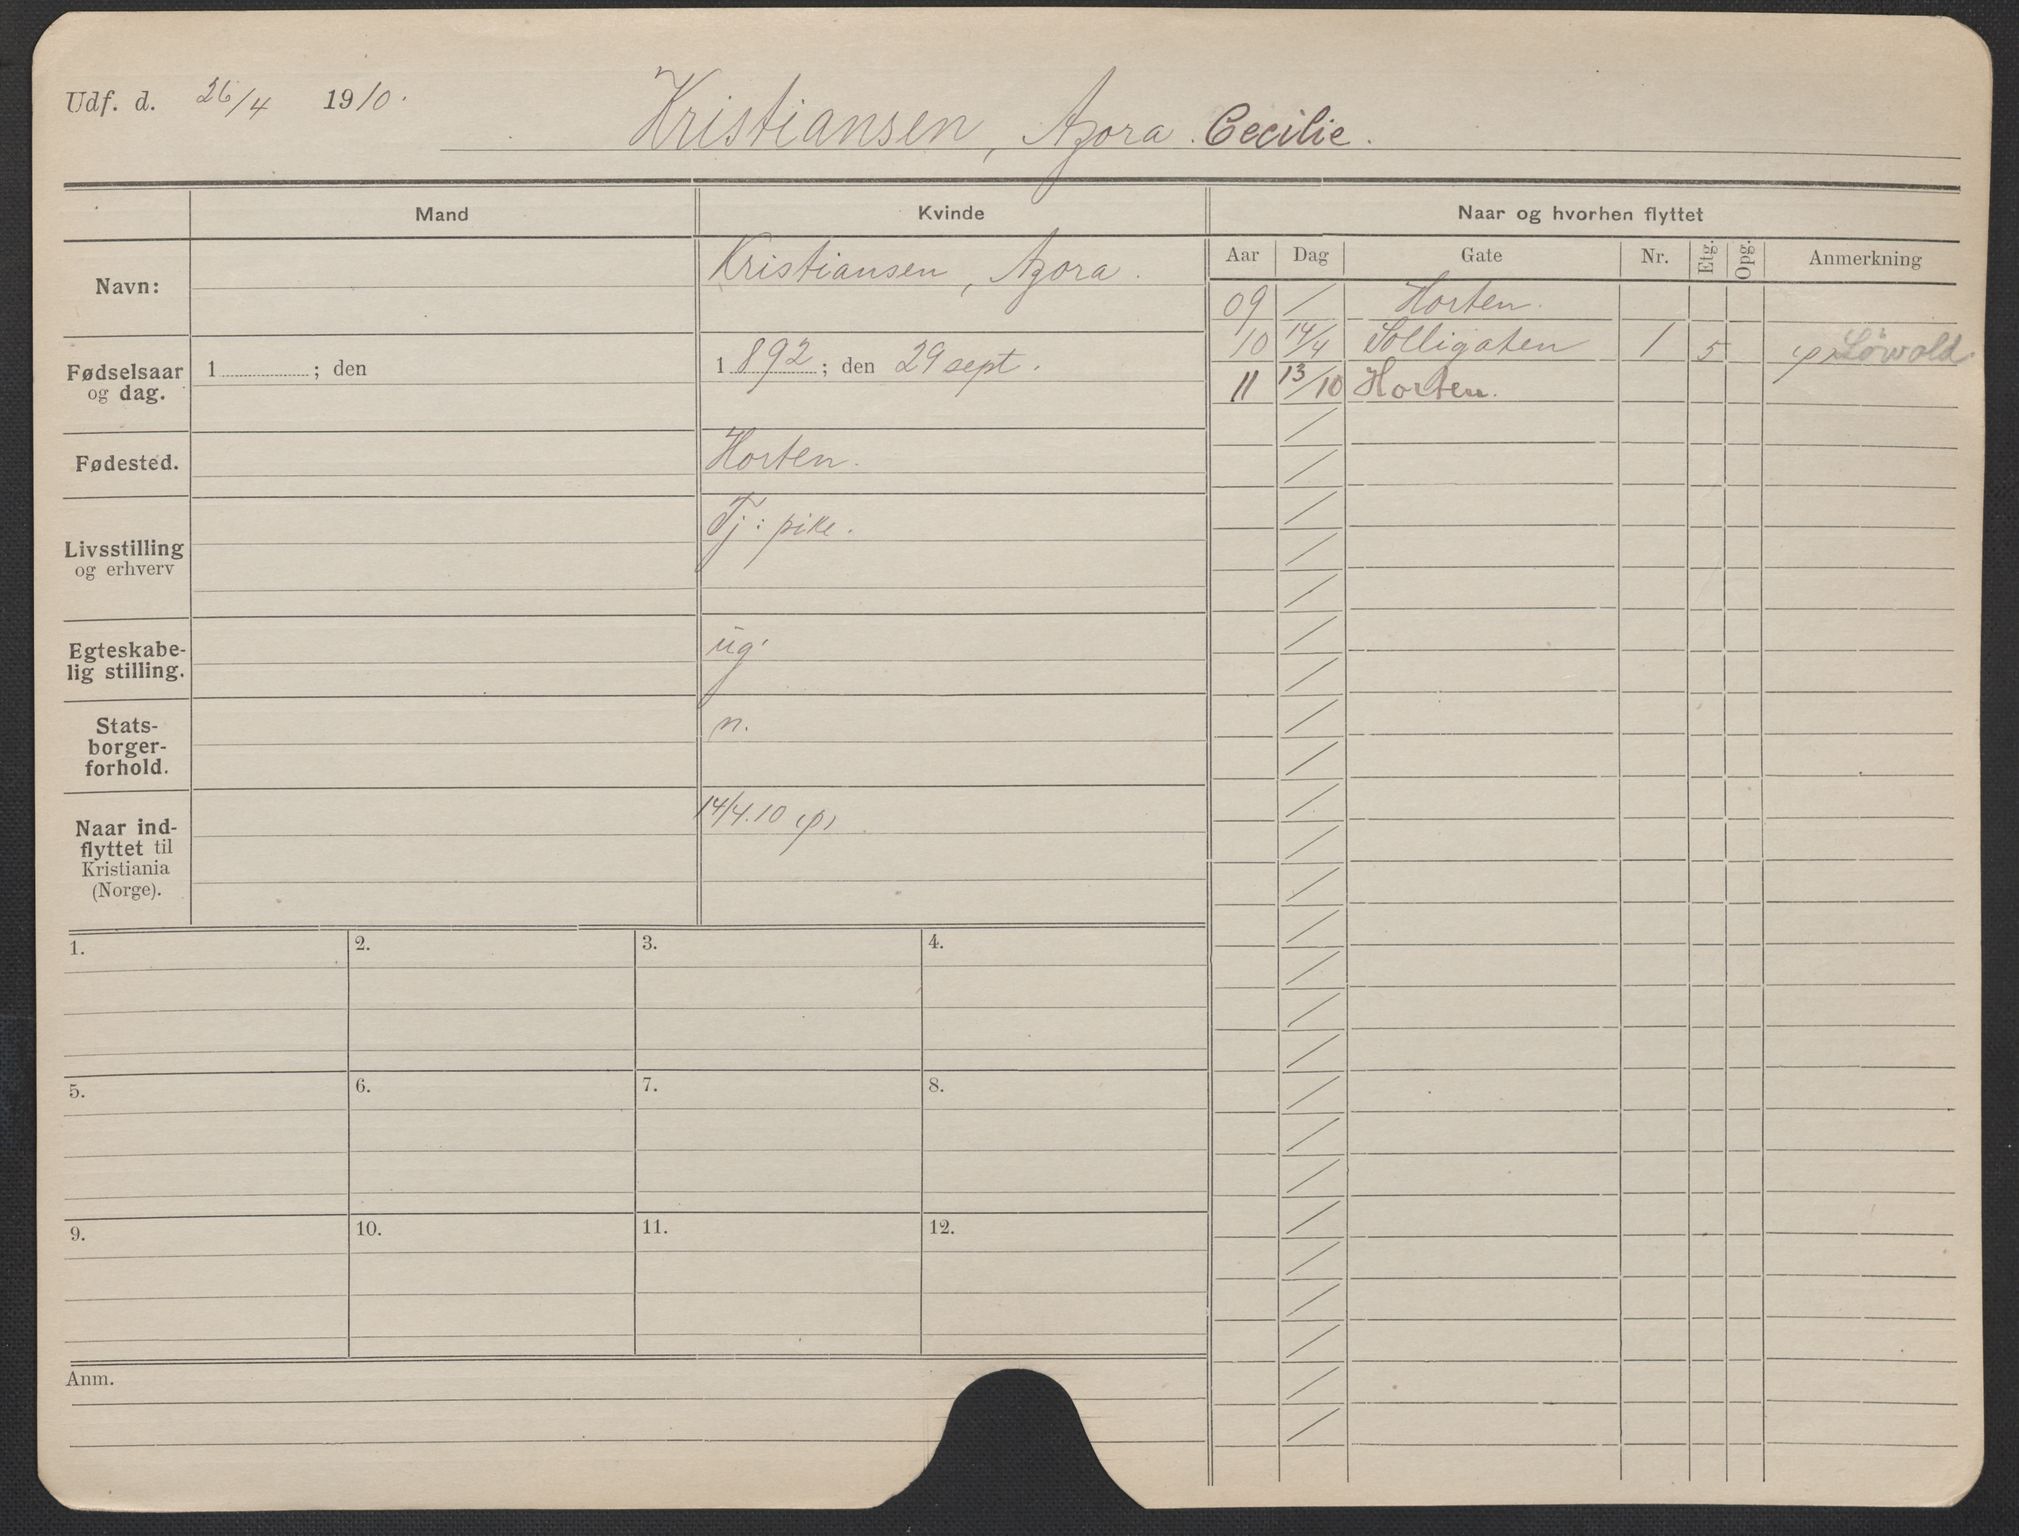 Udf. d. 26/4 1910.
Kristiansen, Azora. Cecilie.
Mand
Kvinde
Navn:
Kristiansen, Azora.
Fødselsaar og dag.
1 ; den
1892 ; den 29 sept.
Fødested.
Horten.
Livsstilling og erhverv
Tj: pike.
Egteskabe-
lig stilling.
ug.
Stats-
borger-
forhold.
n.
Naar ind-
flyttet til
Kristiania
(Norge).
14/4.10
1. 2. 3. 4.
5. 6. 7. 8.
9. 10. 11. 12.
Anm.
Naar og hvorhen flyttet
Aar Dag Gate Nr. Etg. Opg. Anmerkning
09 / Horten.
10 14/4 Solligaten 1 5 Löwold.
11 13/10 Horten.